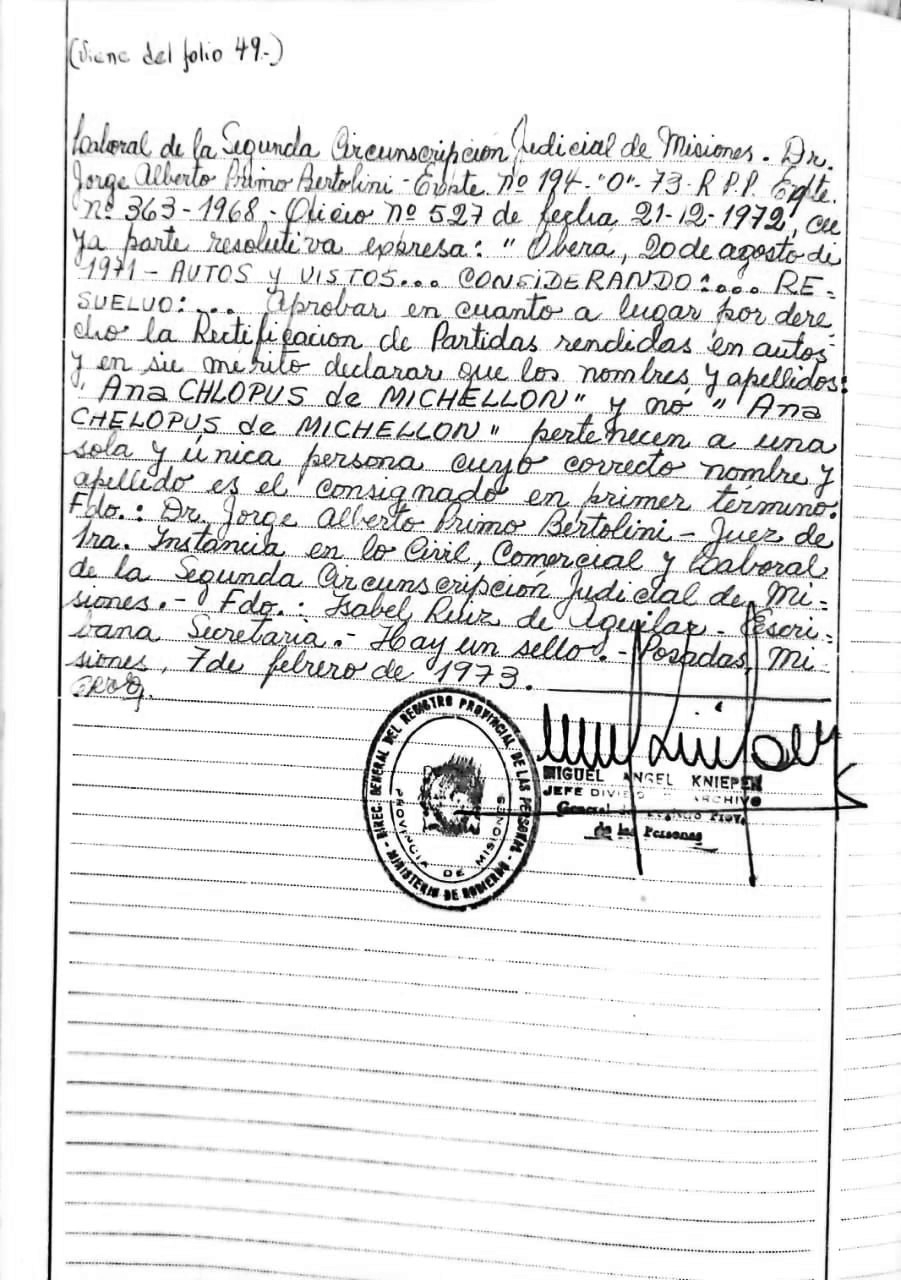 (Viene del folio 49.-)
Laboral de la Segunda Circunscripción Judicial de Misiones. Dr.
Jorge Alberto Primo Bertolini - Expte. nº 194-"O"-73-R.P.P. Expte.
nº 363-1968 - Oficio nº 527 de fecha, 21-12-1972, cu
ya parte resolutiva expresa: "Obera, 20 de agosto de
1971 - AUTOS y VISTOS... CONSIDERANDO:... RE-
SUELVO:... Aprobar en cuanto a lugar por dere-
cho la Rectificacion de Partidas rendidas en autos
y en su mérito declarar que los nombres y apellidos:
"Ana CHLOPUS de MICHELLON" y nó "Ana
CHELOPUS de MICHELLON" pertenecen a una
sola y única persona cuyo correcto nombre y
apellido es el consignado en primer término.
Fdo.: Dr. Jorge Alberto Primo Bertolini - Juez de
1ra. Instancia en lo Civil, Comercial y Laboral
de la Segunda Circunscripción Judicial de Mi-
siones.- Fdo.: Isabel Ruiz de Aguilar - Escri-
bana Secretaria.- Hay un sello.- Posadas, Mi-
siones, 7 de febrero de 1973.
DIREC. GENERAL DEL REGISTRO PROVINCIAL DE LAS PERSONAS - MINISTERIO DE GOBIERNO -
PROVINCIA DE MISIONES
MIGUEL ANGEL KNIEPEN
JEFE ARCHIVO
General
de las Personas